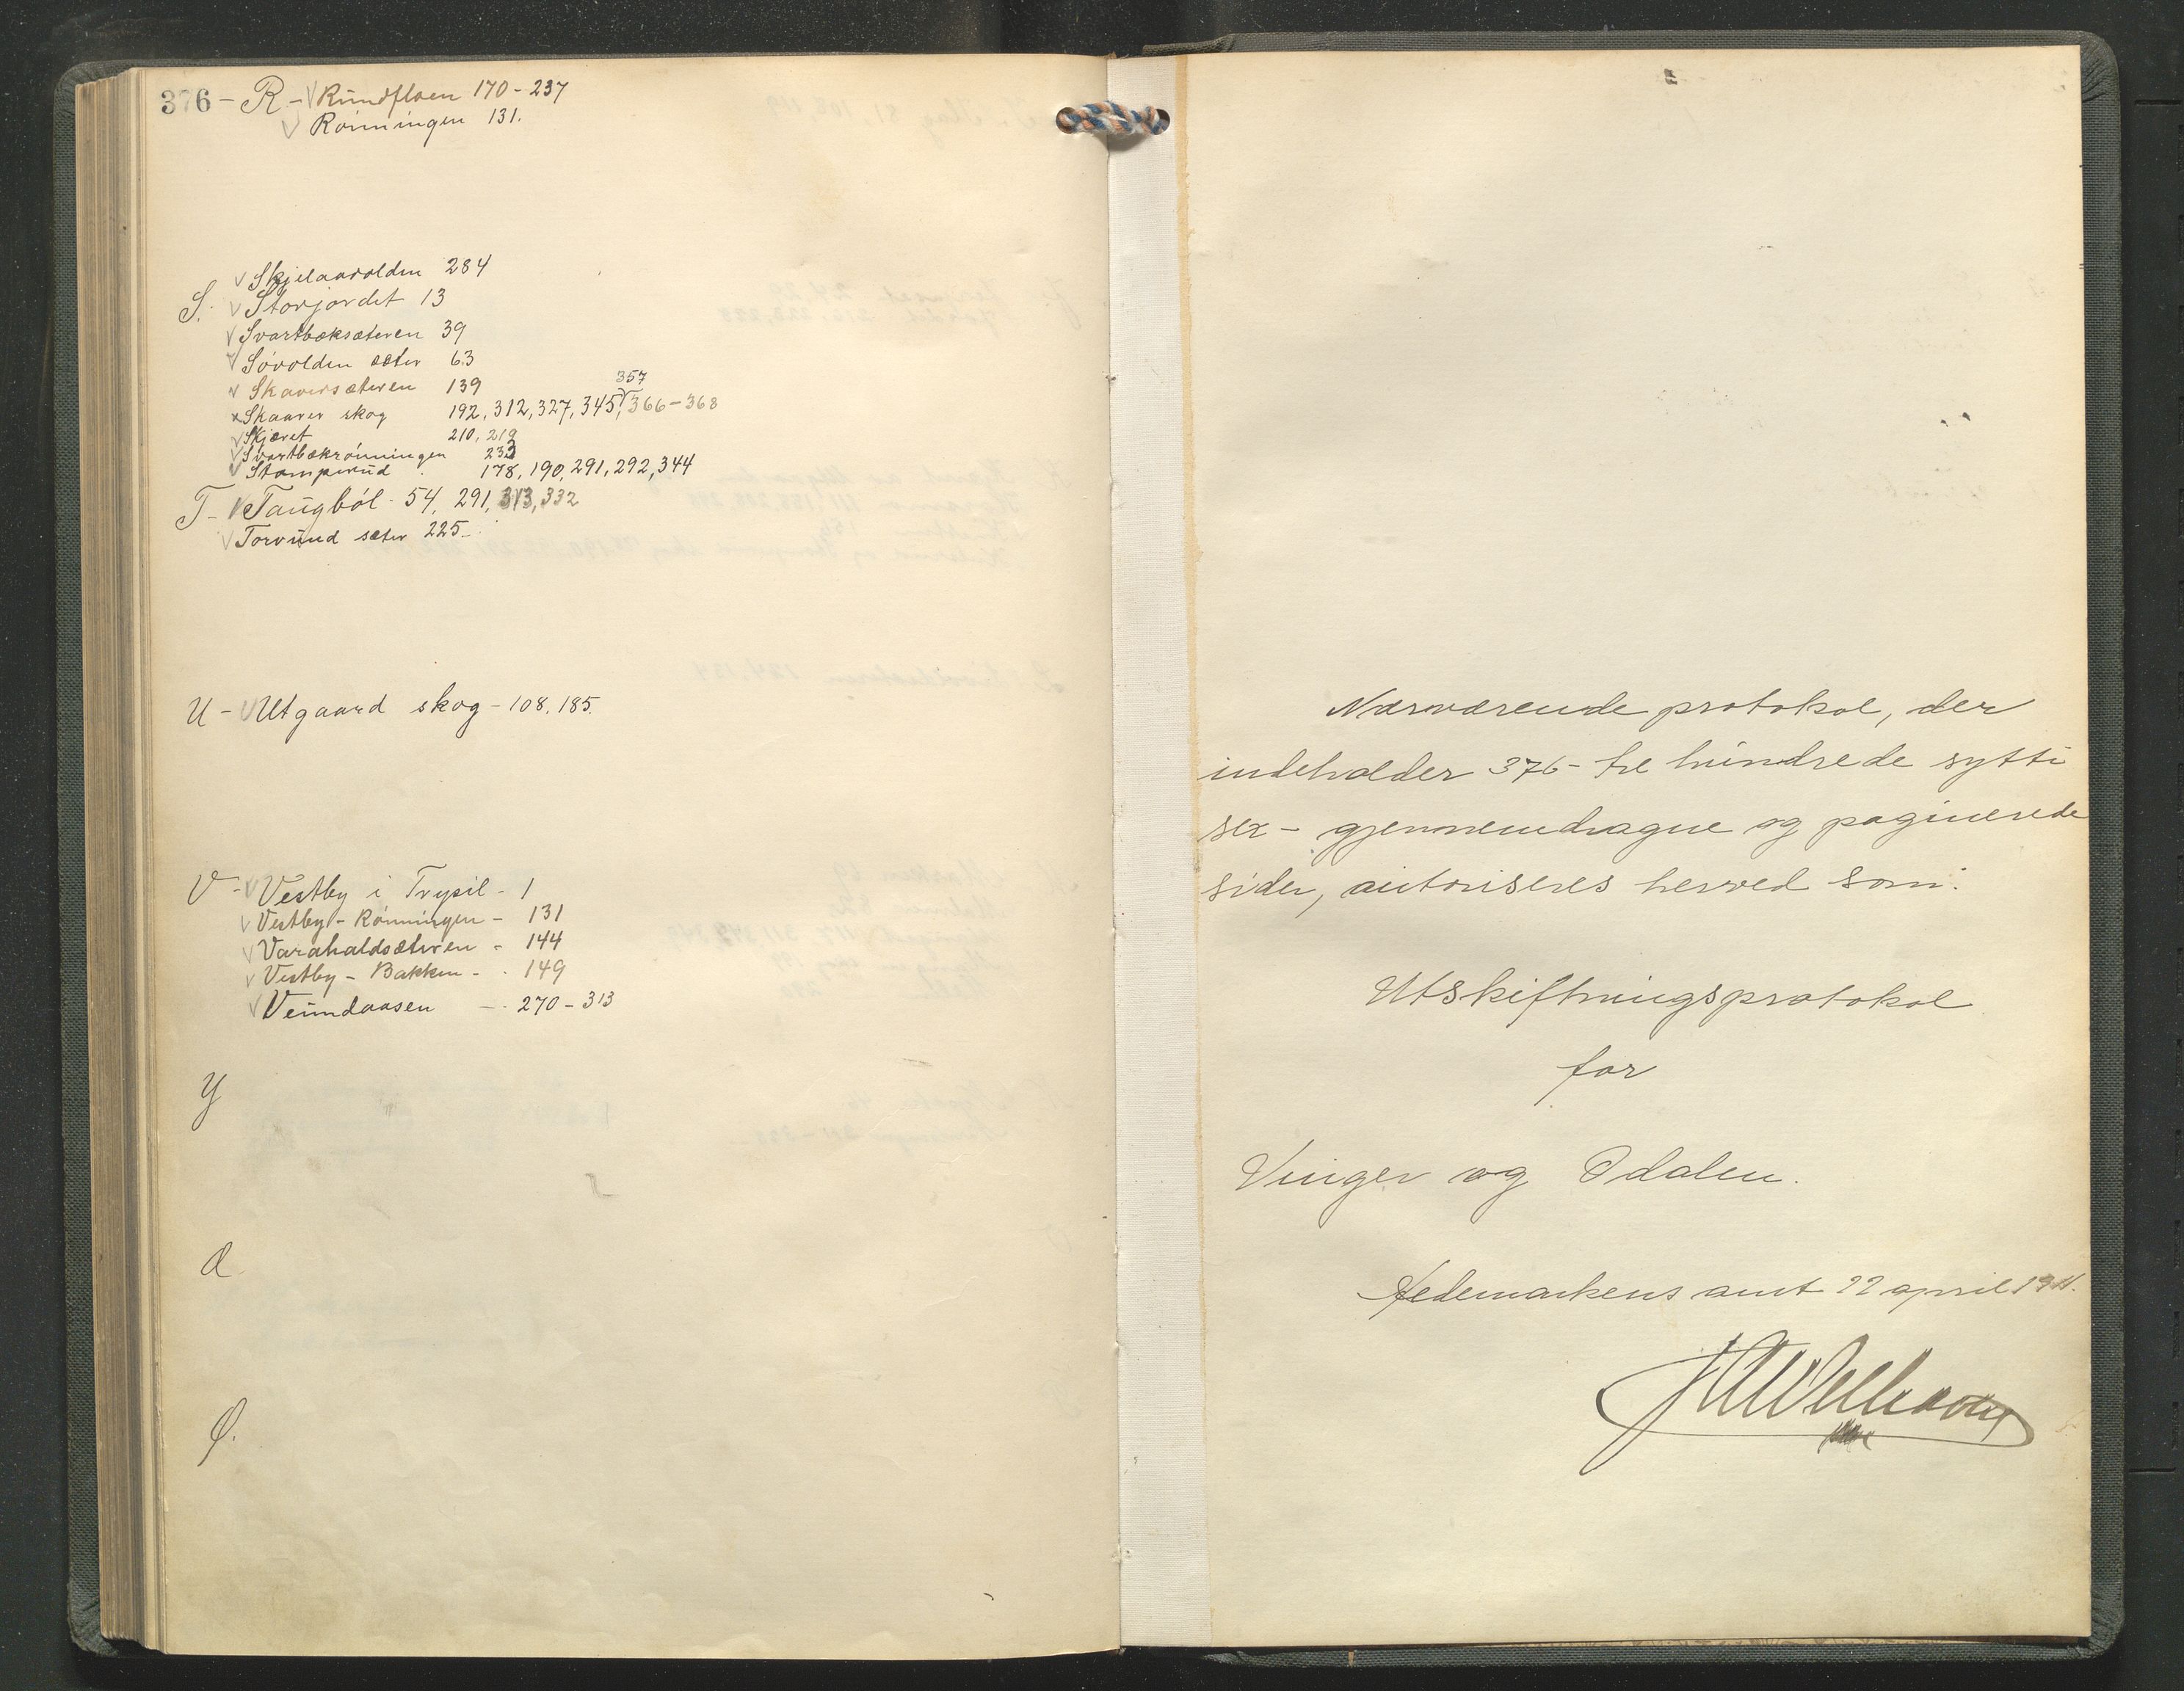 376 - R - Rundfloen 170 - 237
Rønningen 131.
Skjelaavolden 284
S. Storjordet 13
Svartbæksæteren 39
Søvolden sæter 63
Skaversæteren 139
357
Skaarer skog 192, 312, 327, 345, 366-368
Skjæret 210, 219
Svartbækrønningen 233
Stamperud 178, 190, 291, 292, 344
T - Taugbøl - 54, 291, 313, 332
Torvund sæter 225 -
U - Utgaard skog - 108, 185.
V - Vestby i Trysil - 1
Vestby - Rønningen - 131
Varahaldsæteren - 144
Vestby - Bakken - 149
Veundaasen - 270 - 313
Y
Ø.
Nærværende protokol, der
indeholder 376 - tre hundrede sytti
sex - gjennemdragne og paginerede
sider, autoriseres herved som:
Utskiftningsprotokol
for
Vinger og Odalen.
Hedemarkens amt 22 april 1911.